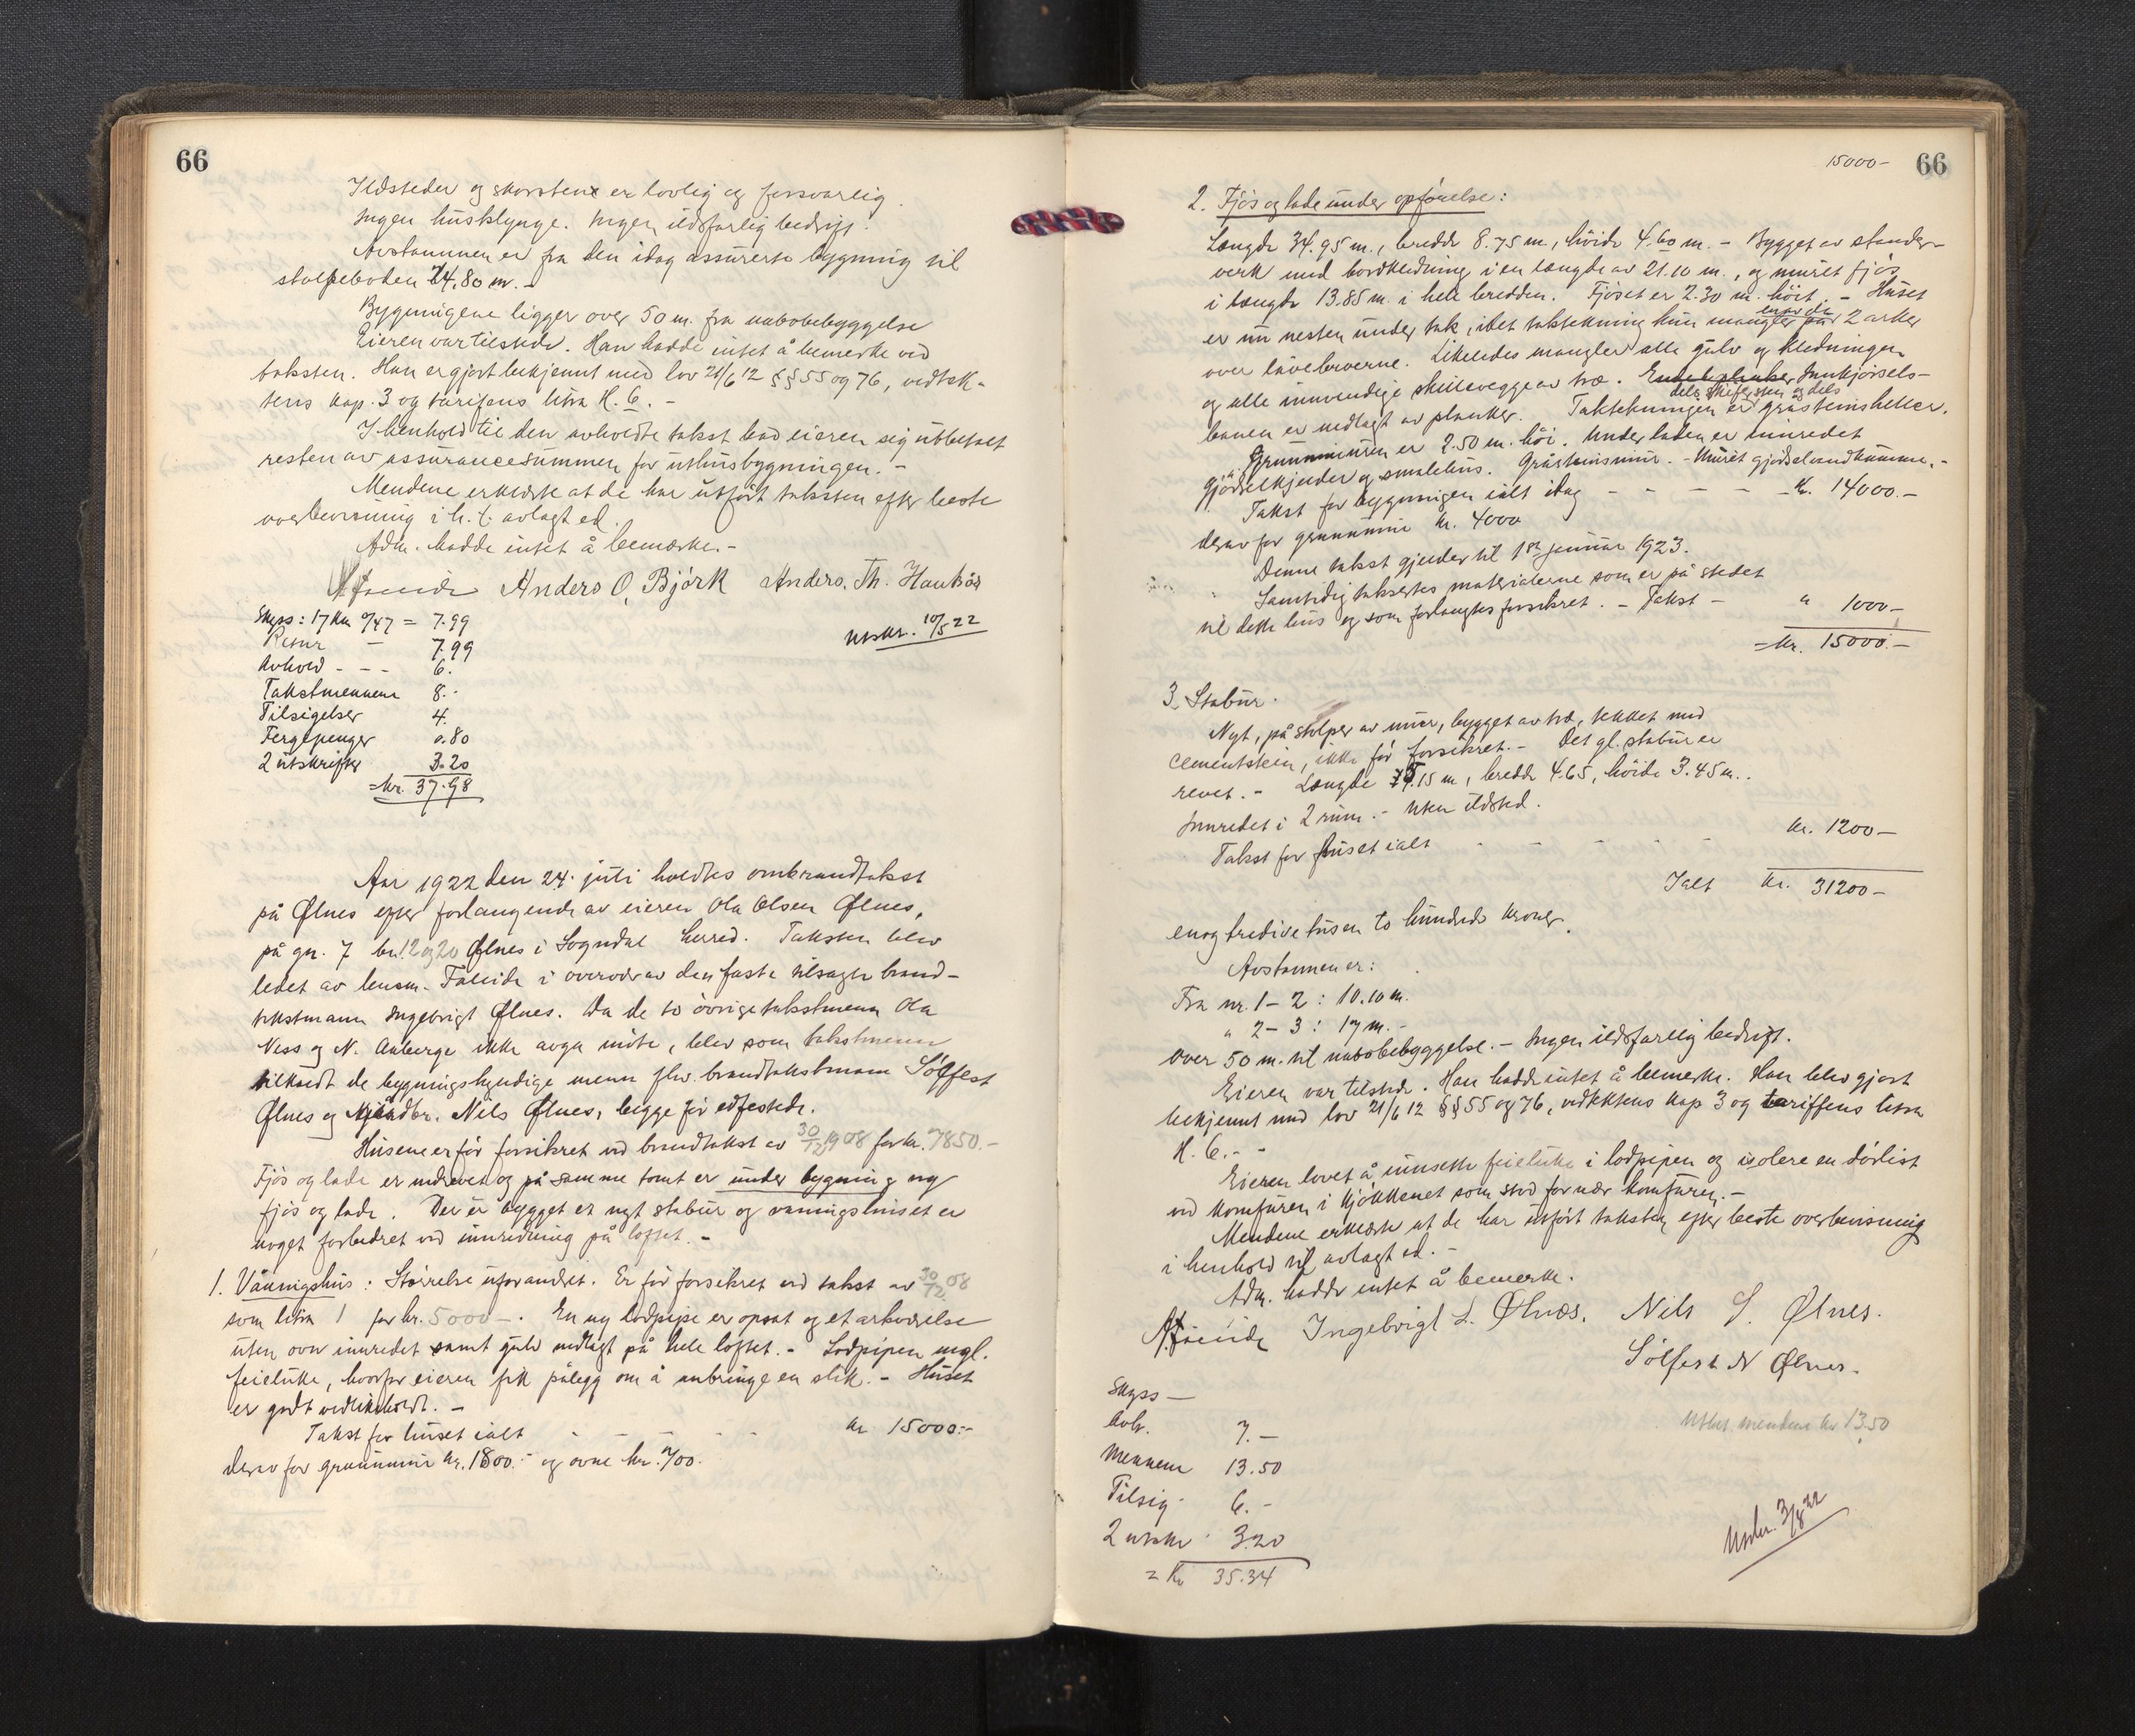 66
Ildsteder og skorstene er lovlig og forsvarlig.
Ingen husklynge. Ingen ildsfarlig bedrift.
Avstannen er fra den idag assurerte bygning til
stolpeboden 24.80 m. -
Bygningene ligger over 50 m. fra nabobebyggelse
Eieren var tilstede. Han hadde intet å bemerke ved
taksten. Han er gjort bekjennt med lov 21/6 12 §§ 55 og 76, vedtek-
tens kap. 3 og tarifens litra H. 6. -
I henhold til den avholdte takst bad eieren sig utbetalt
resten av assurancesummen for uthusbygningen. -
Mendene erklærte at de har utført taksten efter beste
overbevisning i h. t. avlagt ed.
Adm. hadde intet å bemærke. -
Anders O. Björk Anders. Th. Haukås
Skyss: 17 km a/47 = 7.99
Retur — 7.99
Avhold - - - 6.
Takstmennene 8.-
Tilsigelser 4.
Fergepenger 0.80
2 utskrifter 3.20
= kr. 37.98
Utskr. 10/5 22
Aar 1922 den 24. juli holdtes ombrandtakst
på Ølnes efter forlangende av eieren Ola Olsen Ølnes,
på gn. 7 bn. 12 og 20 Ølnes i Sogndal herred. Taksten blev
ledet av lensm. Faleide i overvær av den faste tilsagte brand-
takstmann Ingebrigt Ølnes. Da de to övrige takstmenn Ola
Ness og N. Auberge ikke avga möte, blev som takstmenn
tilkaldt de bygningskyndige menn fhv. brandtakstmann Sölfest
Ølnes og gårdbr. Nils Ølnes, begge för edfestede.
Husene er för forsikret ved brandtakst av 30/12 1908 for kr. 7850.-
Fjös og lade er nedrevet og på samme tomt er under bygning ny
fjös og lade. Der er bygget et nyt stabur og våningshuset er
noget forbedret ved innredning på loftet. -
1. Våningshus: Störrelse uforandret. Er för forsikret ved takst av 30/12 08
som litra 1 for kr. 5000 -. En ny lodpipe er opsat og et arkværelse
uten ovn innredet samt gulv nedlagt på hele loftet. - Lodpipen mgl.
feieluke, hvorfor eieren fik pålegg om å anbringe en slik. - Huset
er godt vedlikeholdt. -
Takst for huset ialt - - - - kr 15000.-
derav for grunnmur kr. 1800.- og ovne kr. 700.
15000- 66
2. Fjös og lade under opförelse:
Længde 34.95 m., bredde 8.75 m, höide 4.60 m. - Bygget av stender-
verk med bordkledning i en længde av 21.10 m., og muret fjös
i længde 13.85 m. i hele bredden. Fjöset er 2.30 m. höit. - Huset
er nu nesten under tak, idet taktekning kun mangler på 2 arker
over låvebroerne. Likeledes mangler alle gulv og kledningen
og alle innvendige skillevegge av træ. Innkjörsels-
banen er nedlagt av planker. Taktekningen er dels skifersten og dels gråsteinsheller.
Grunnmuren er 2.50 m. höi. Under laden er innredet
gjödselkjelder og smalehus. Gråsteinsmur. - Muret gjödselvandkumme. -
Takst for bygningen ialt idag - - - - kr. 14000.-
derav for grunnmur kr. 4000
Denne takst gjelder til 1ste januar 1923.
Samtidig takseres materialerne som er på stedet
til dette hus og som forlangtes forsikret. - Takst - " 1000-
= kr. 15000.-
3. Stabur.
Nyt, på stolper av mur, bygget av træ, tekket med
cementstein, ikke för forsikret. - Det gl. stabur er
revet. - Længde 5.15 m, bredde 4.65, höide 3.45 m.
Innredet i 2 rum. - Uten ildsted.
Takst for huset ialt - - - - - kr. 1200-
Ialt kr. 31200-
en og tredive tusen to hundrede kroner.
Avstannen er:
Fra nr. 1 - 2: 10.10 m.
" 2 - 3: 17 m. -
Over 50 m. til nabobebyggelse. - Ingen ildsfarlig bedrift.
Eieren var tilstede. Han hadde intet å bemerke. Han blev gjort
bekjennt med lov 21/6 12 §§ 55 og 76, vedtektens kap 3 og tariffens litra
H. 6. - -
Eieren lovet å innsette feieluke i lodpipen og isolere en dörlist
ved komfuren i kjökkenet som stod for nær komfuren. -
Mendene erklærte at de har utfört taksten efter beste overbevisning
i henhold til avlagt ed. -
Adm. hadde intet å bemerke.
A. Faleide Ingebrigt L. Ølnes. Nils S. Ølnes.
Sölfest N Ølnes.
Skyss —
Avh. 7.—
Mennene 13.50
Tilsig. 6.-
2 utskr. 3.20
= Kr 35.34
Utbet. mendene kr 13.50
Utskr. 3/8 22